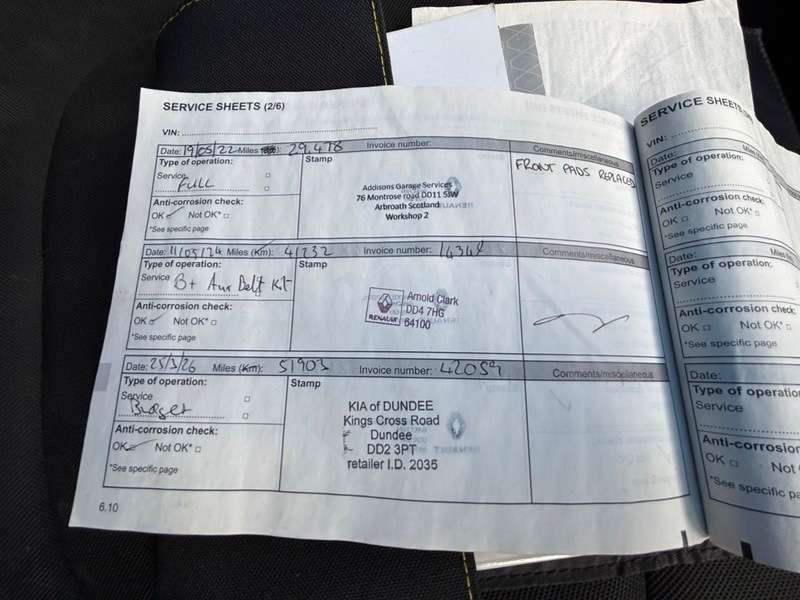 SERVICE SHEETS (2/6)
VIN:
Date: 19/05/22 Miles 29,478 Invoice number: Comments/miscellaneous
Type of operation: Stamp
Service FULL
Anti-corrosion check:
OK Not OK*
*See specific page
Addisons Garage Services
76 Montrose road DD11 5JW
Arbroath Scotland
Workshop 2
FRONT PADS REPLACED
Date: 11/05/24 Miles (Km): 41232 Invoice number: Comments/miscellaneous
Type of operation: Stamp
Service B+ Aux Belt Kit
Anti-corrosion check:
OK Not OK*
*See specific page
RENAULT
Arnold Clark
DD4 7HG
64100
Date: 25/3/26 Miles (Km): 51903 Invoice number: 42059 Comments/miscellaneous
Type of operation: Stamp
Service
Budget
Anti-corrosion check:
OK Not OK*
*See specific page
KIA of DUNDEE
Kings Cross Road
Dundee
DD2 3PT
retailer I.D. 2035
6.10
SERVICE SHEETS
VIN:
Date:
Type of operation:
Service
Anti-corrosion check:
OK Not OK*
*See specific page
Date: Miles
Type of operation:
Service
Anti-corrosion check:
OK Not OK*
*See specific page
Date:
Type of operation
Service
Anti-corrosion
OK Not
*See specific pa